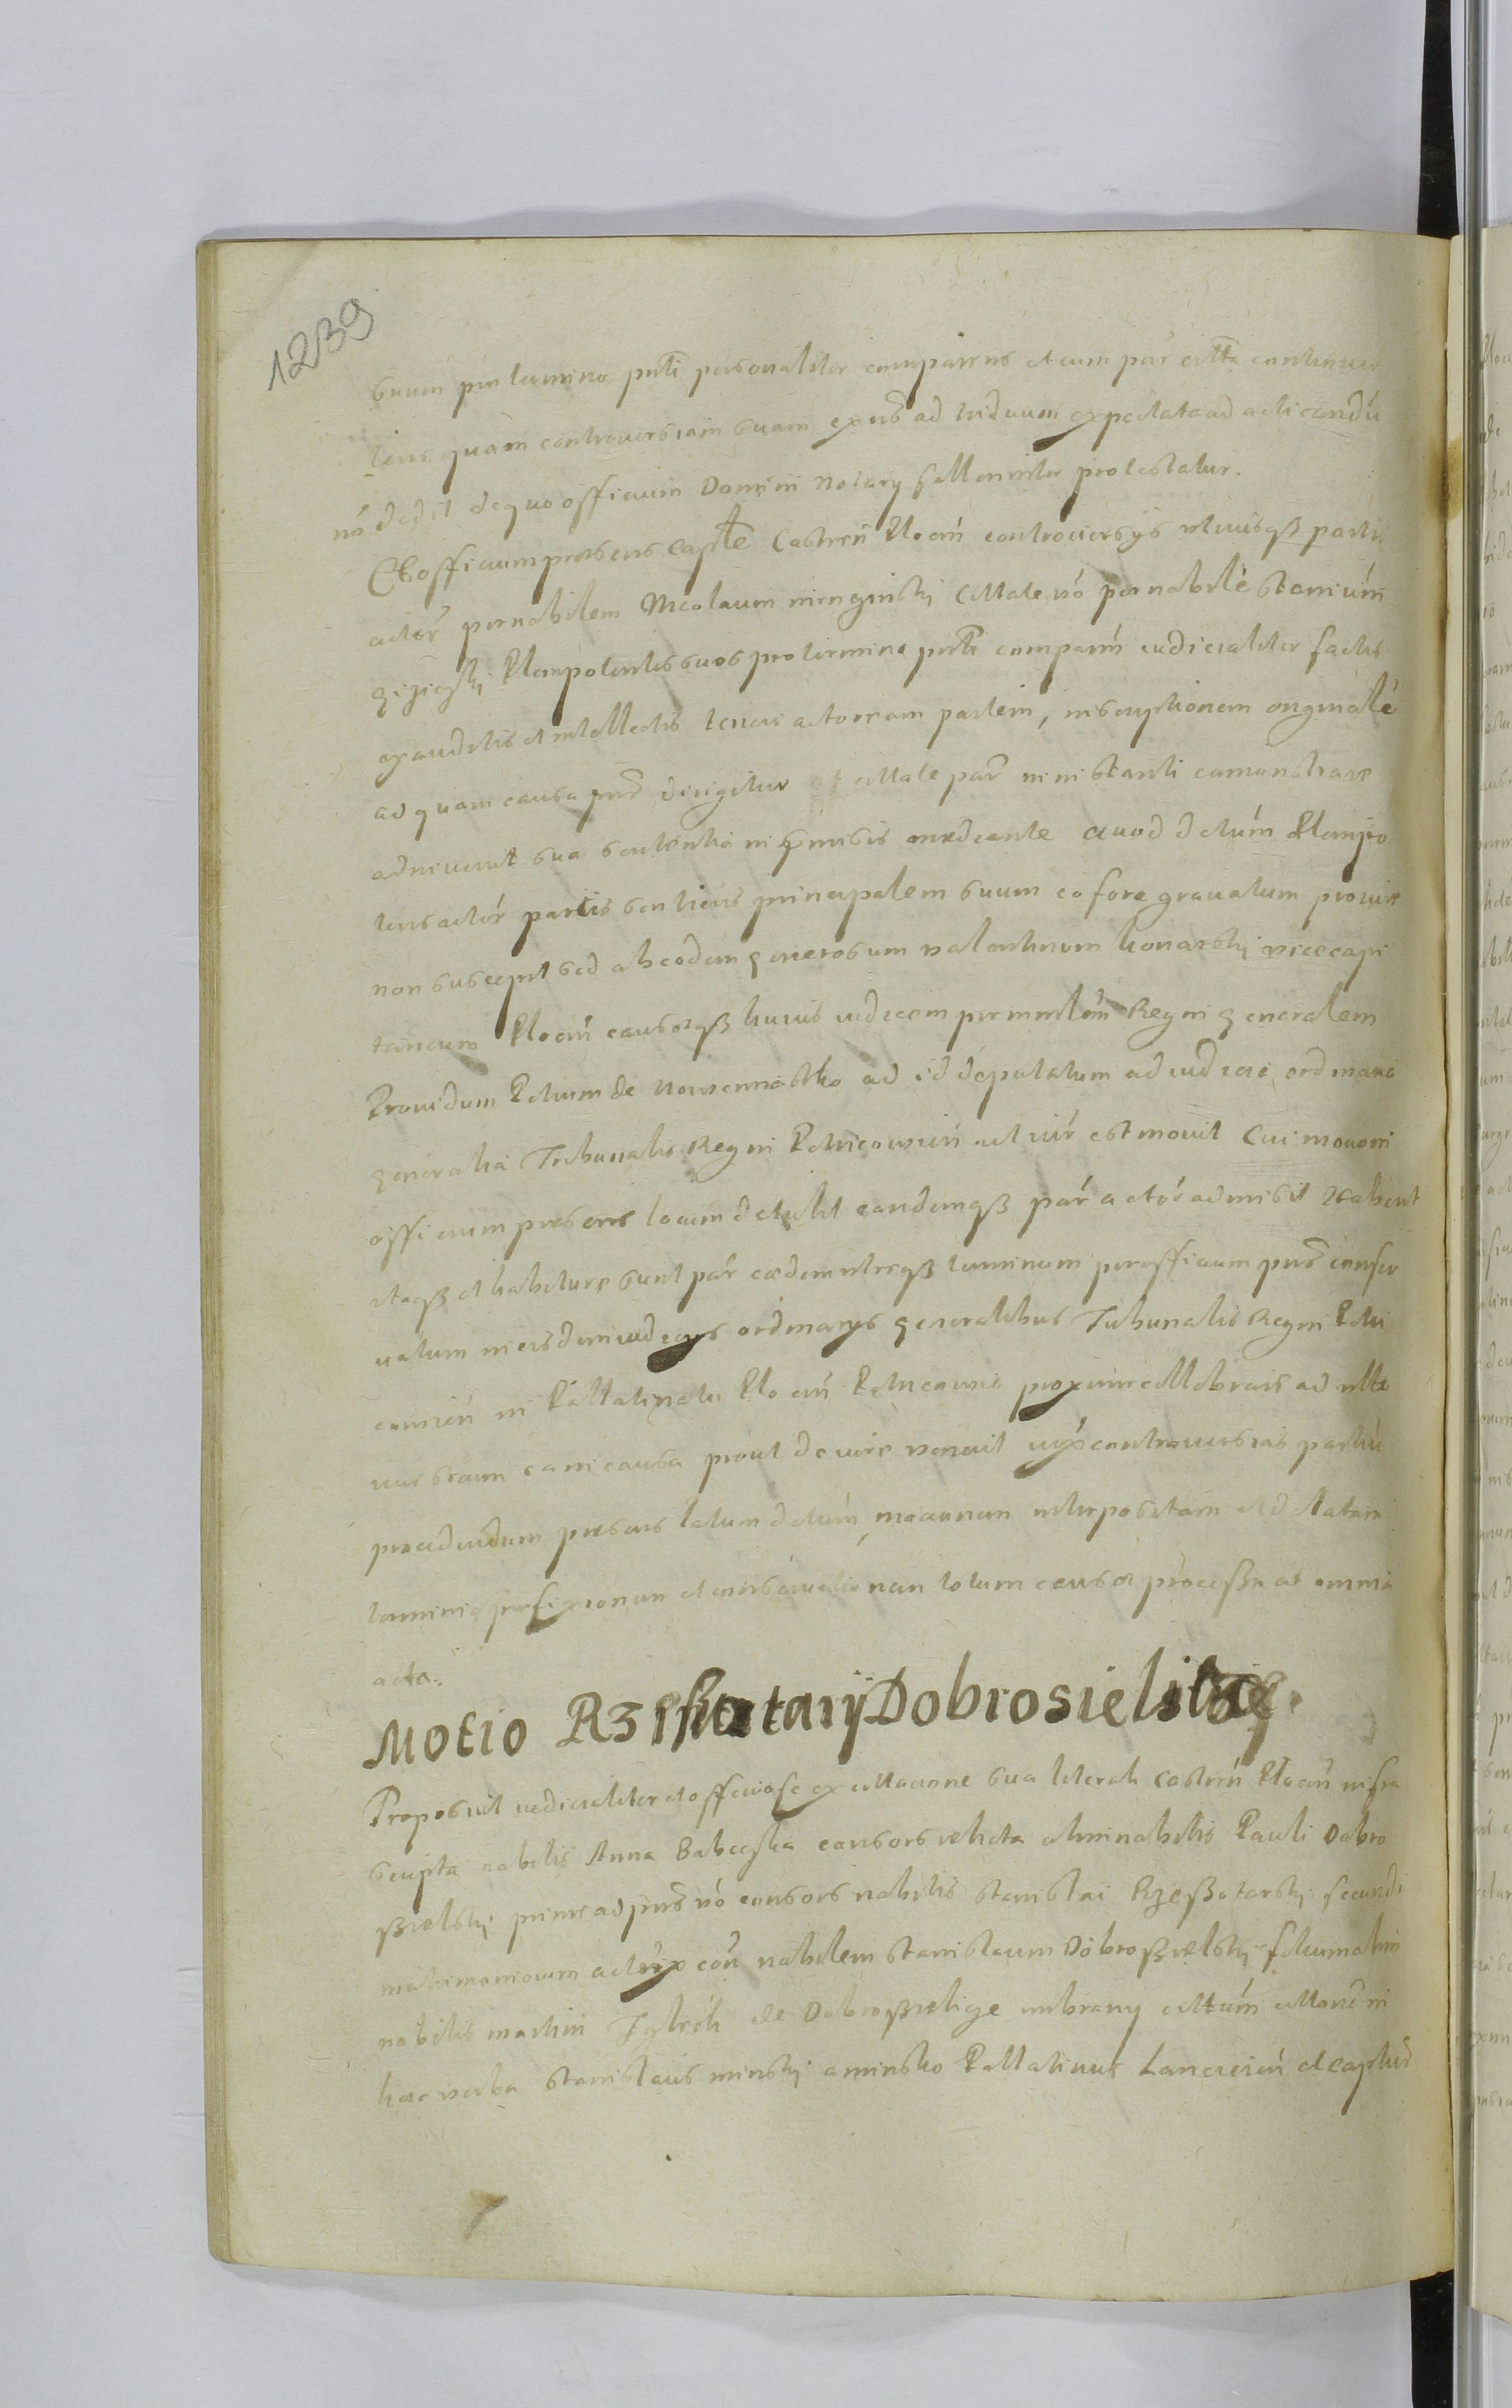 1239
suum pro termino pnti personaliter comparens et cum par citta contraver
tens quam controversiam suam ex nis ad triduum expectata ad acticandu
no dedit de quo officium Domini Notary sollenniter protestatur.
Et officium praesens Captle Castren Plocen controversys utriusqß partis
actor per nobilem Nicolaum citate vo per nobile Stanium
Plenipotentes suos pro termine pnti comparen iudicialiter factis
exauditis et intellectis teneri actoream partem, inscriptionem originale
ad quam causa pns dirigitur citate par in instanti comonstrare
adinvenit sua sententia in praemissis mediante Quod detum Plenipo
tens actor partis sentiens principalem suum eo fore gravatum pronire
non suscepit sed ab eodem generosum Valentinum vicecapi
taneum Plocen causaeqß huius iudicem per mnlem Regni generalem
Providum Petrum de ad id deputatum ad iudicia ordinaria
generalia Tribunalis Regni Petricovien ut iur est movit Cui motioni
officium presens locum detulit eandemqß par actor admisit Habent
itaqß et habiture sunt par eaedem utreqß terminum per officium pns conser
vatum in eisdem iudicys ordinarys generalibus Tribunalis Regni Petri
covien in Pallatinatu Plocen Petricovie proxime cellebrais ad ulte
riis stium ea in causa prout de iure venerit iuxta controversias partiu
procedendum presens latum detum, mocionem interpositam et delatam
termini prefixionem et conservationem totum causae processu ac omnia
acta.
Motio Rzeszotarÿ Dobrosielski.
Proposuit iudicialiter et officiose ex cittacione sua literali Castren Plocen infra
scripta nobilis Anna Babecska consors relicta olim nobilis Pauli Dobro
ßielskj primi ad pns vo consors nobilis Stanislai Rzeßotarskj secundi
matrimoniorum actrix con nobilem Stanislaum Dobroßielskj filium olim
nobilis Martini de Dobroßielice cittum cittacne in
haec verba Stanislaus Minskj a Minsko Pallatinus Lancicien et capius